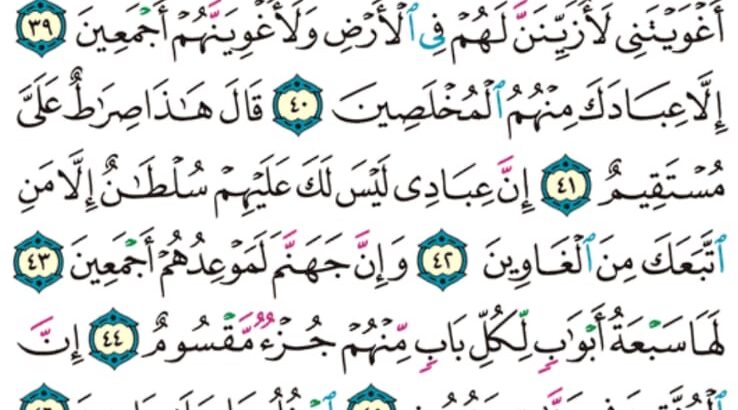 أَغْوَيْتَنِى لَأُزَيِّنَنَّ لَهُمْ فِى ٱلْأَرْضِ وَلَأُغْوِيَنَّهُمْ أَجْمَعِينَ ٣٩
إِلَّا عِبَادَكَ مِنْهُمُ ٱلْمُخْلَصِينَ ٤٠ قَالَ هَـٰذَا صِرَٰطٌ عَلَىَّ
مُسْتَقِيمٌ ٤١ إِنَّ عِبَادِى لَيْسَ لَكَ عَلَيْهِمْ سُلْطَـٰنٌ إِلَّا مَنِ
ٱتَّبَعَكَ مِنَ ٱلْغَاوِينَ ٤٢ وَإِنَّ جَهَنَّمَ لَمَوْعِدُهُمْ أَجْمَعِينَ ٤٣
لَهَا سَبْعَةُ أَبْوَٰبٍ لِّكُلِّ بَابٍ مِّنْهُمْ جُزْءٌ مَّقْسُومٌ ٤٤ إِنَّ